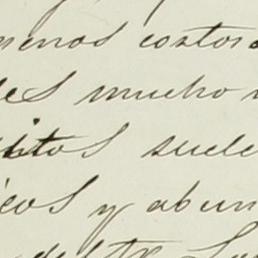 menos costoso
les mucho
itos suele
icos y abun